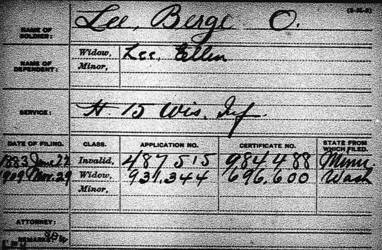 (3-M-2)
NAME OF SOLDIER: Lee, Berge O.
NAME OF DEPENDENT: Widow, Lee, Ellen
Minor,
SERVICE: H 15 Wis. Inf.
DATE OF FILING. CLASS. APPLICATION NO. CERTIFICATE NO. STATE FROM WHICH FILED.
1883 June 27 Invalid, 487515 984488 Minn.
1909 Nov. 29 Widow, 931.344 696.600 Wash
Minor,
ATTORNEY:
REMARKS: